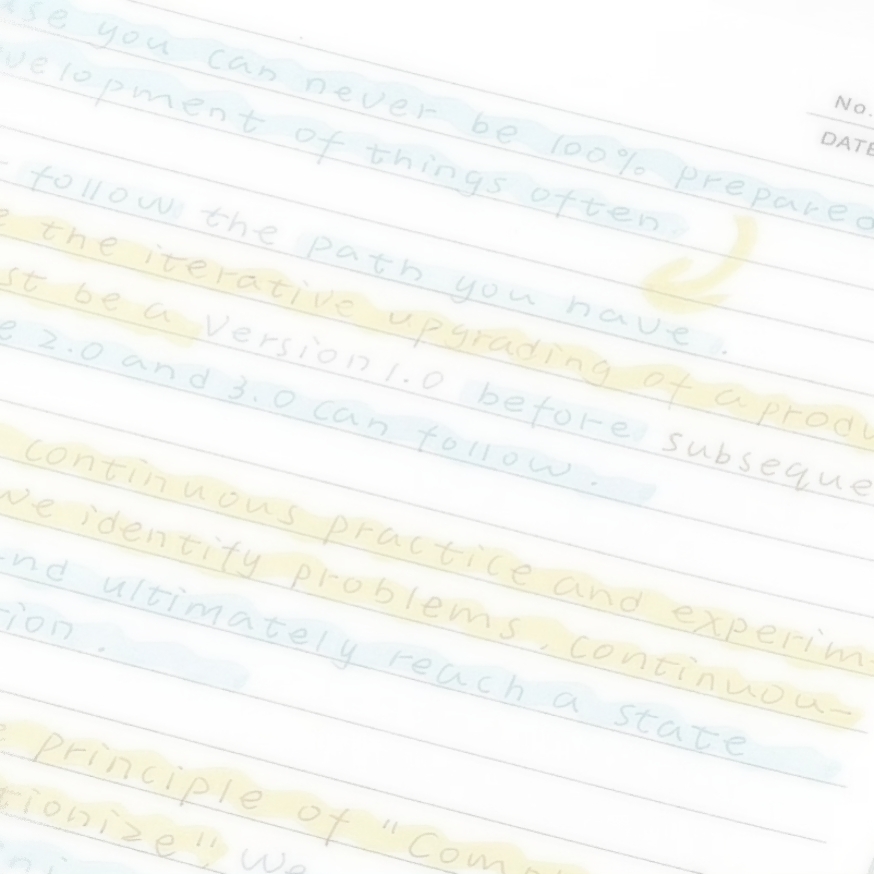 you can never be 100% prepared
No.
DATE
development of things often
follow the path you have.
the iterative upgrading of a produ
st be a Version 1.0 before subseque
2.0 and 3.0 can follow.
continuous practice and experim-
we identify problems, continuou-
and ultimately reach a state
tion.
principle of "Com
tionize" we